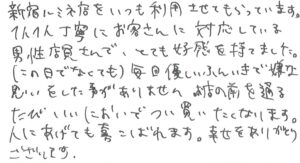 新宿ルミネ店をいつも利用させてもらっています。
1人1人丁寧にお客さんに対応している
男性店員さんで、とても好感を持てました。
(この日でなくても)毎回優しいふんいきで嫌な
思いをした事がありません お店の前を通る
たびいいにおいでつい買いたくなります。
人にあげても喜こばれます。幸せをありがとう
ございます。